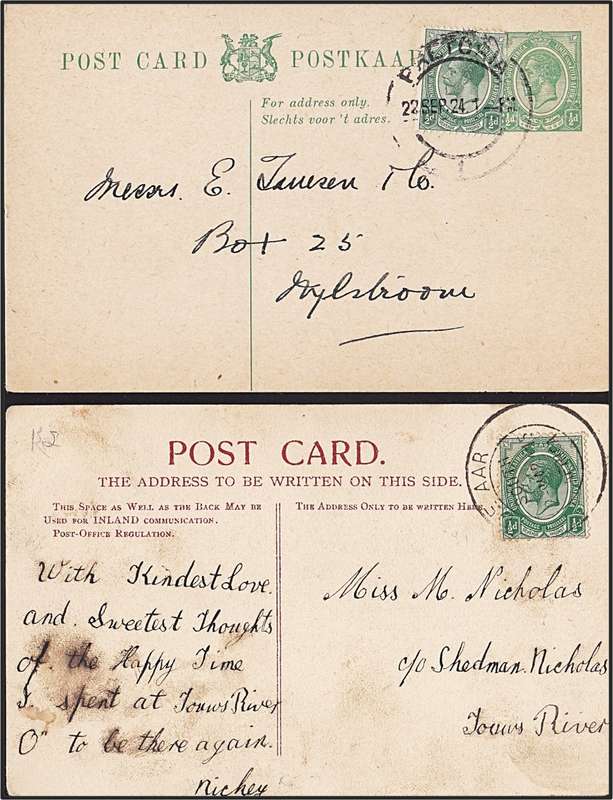 POST CARD POSTKAART
PRETORIA
22 SEP 24
½d ½d
For address only.
Slechts voor 't adres.
Messrs. E. & Co.
Box 25
Nylstroom
POST CARD.
THE ADDRESS TO BE WRITTEN ON THIS SIDE.
THIS SPACE AS WELL AS THE BACK MAY BE
USED FOR INLAND COMMUNICATION.
POST-OFFICE REGULATION.
THE ADDRESS ONLY TO BE WRITTEN HERE
DE AAR
½d ½d
With Kindest Love.
and. Sweetest Thoughts
of. the Happy Time
I. spent at Touws River
O" to be there again.
Nickey
Miss M. Nicholas
c/o Shedman. Nicholas
Touws River